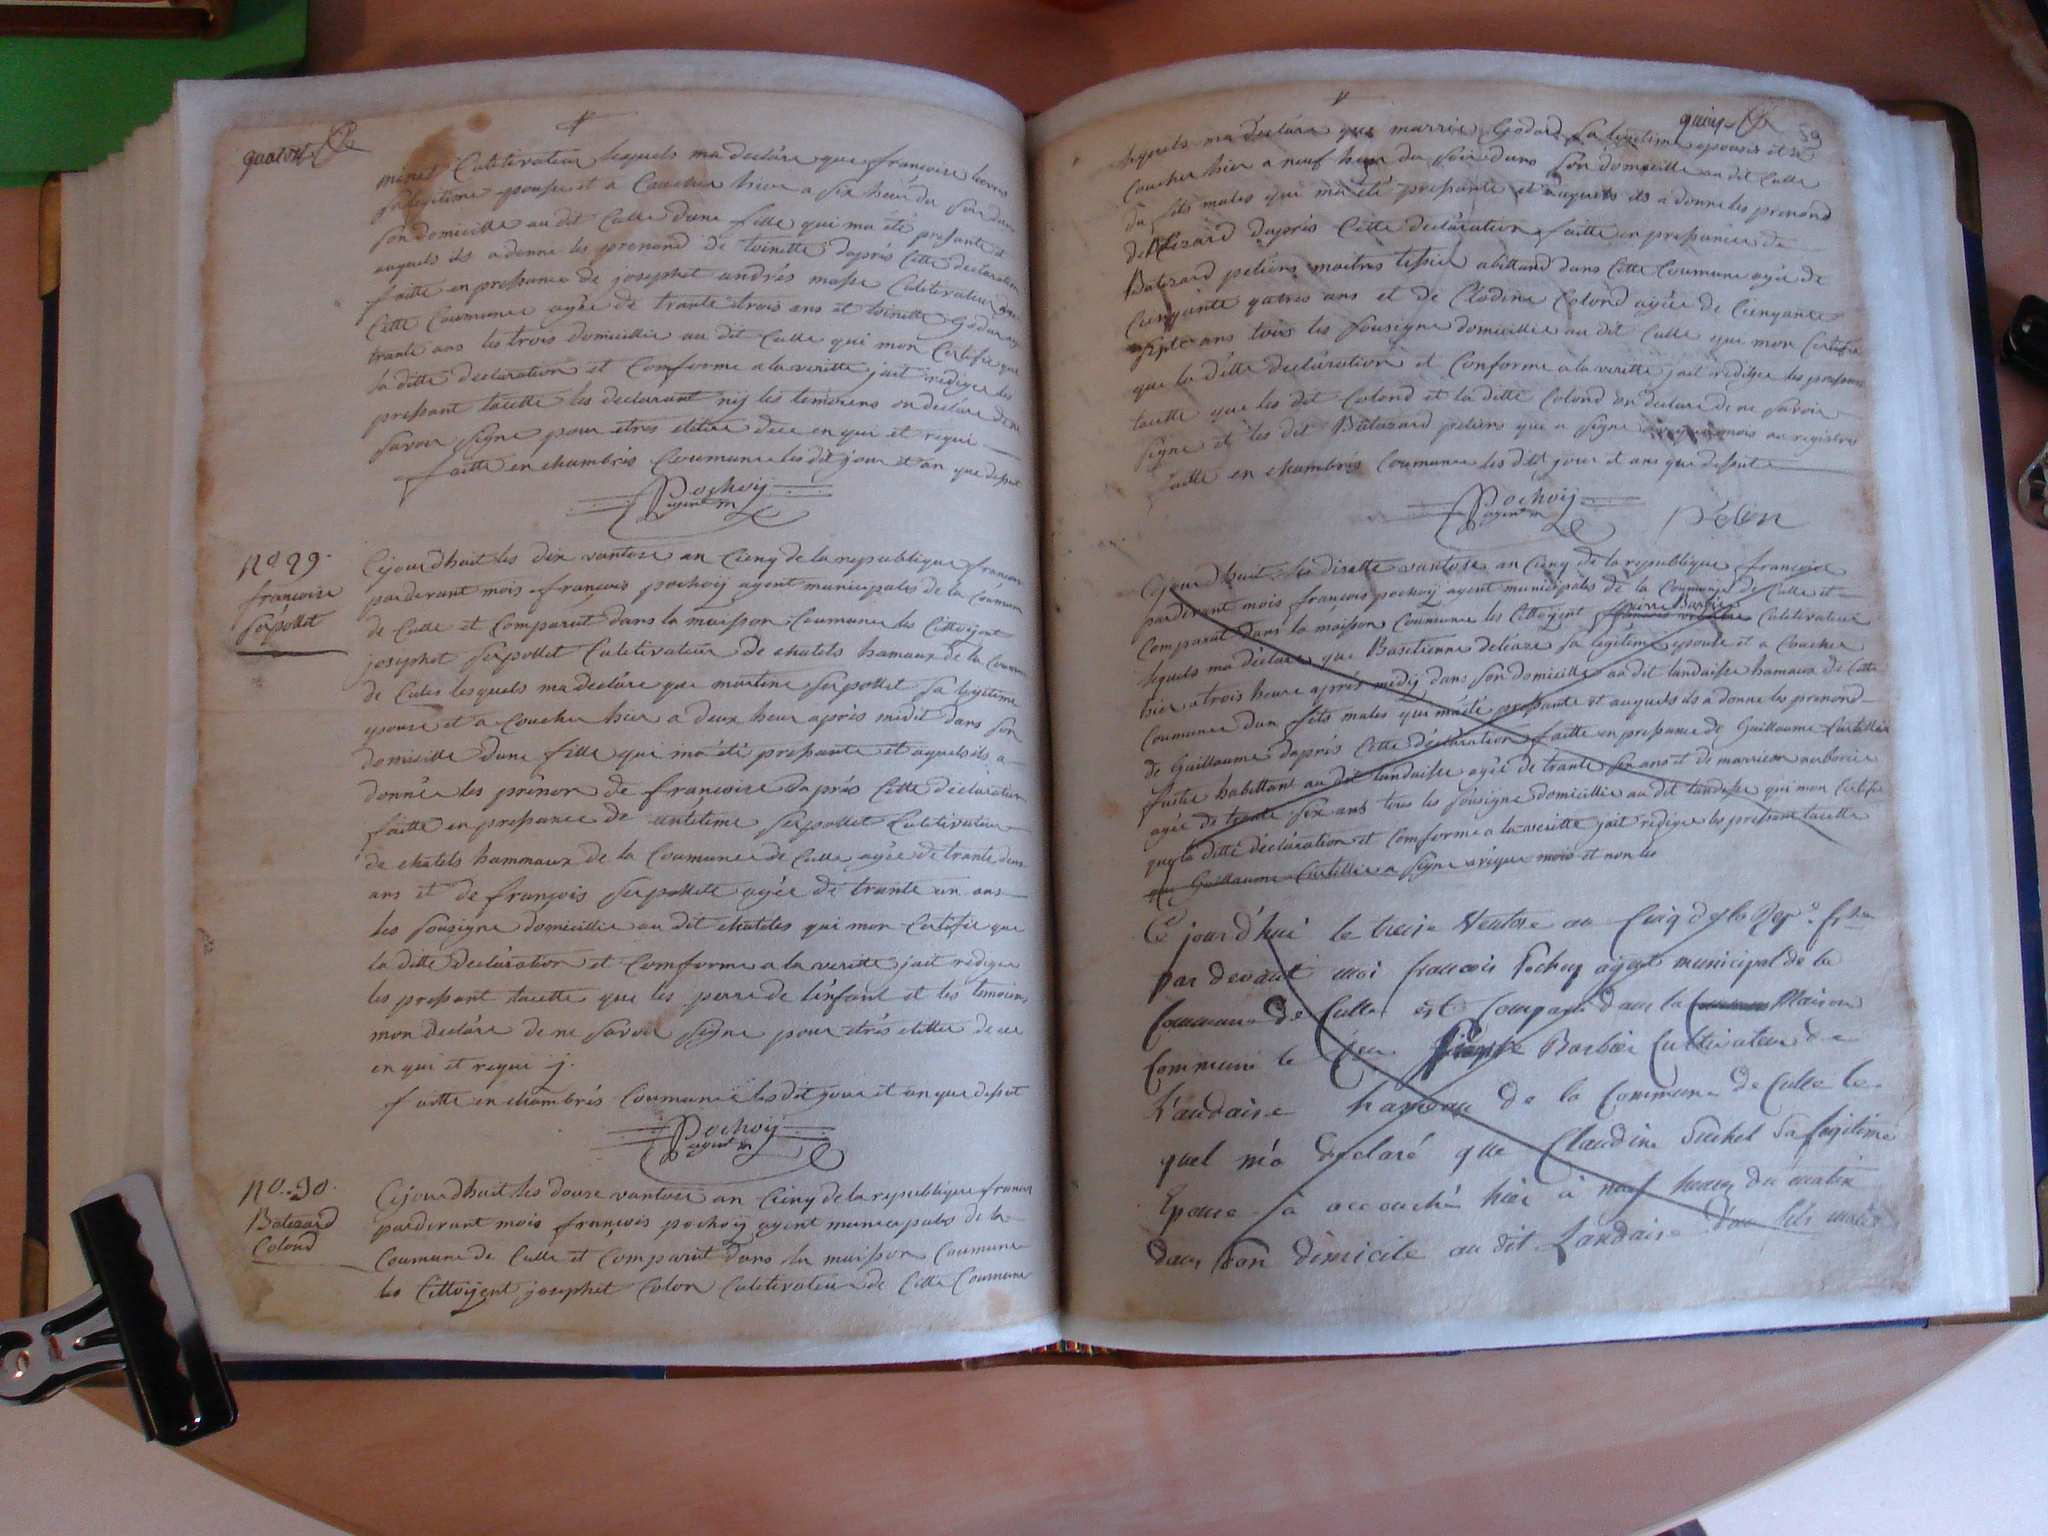 quatorze
minet Culetivateur lesquels ma declare que francoise
sa legitime epouse et a Coucher hier a six heur du soir dans
son domicille au dit Culle dune fille qui ma été presante et
auquels ils a donne les prenond de toinette daprés Cette declaration
faitte en presance de josephet andrés masse Culetivateur
Cette Coumune agée de trante trois ans et toinette Godar
trante ans les trois domicillie au dit Culle qui mon Certifie que
la ditte declaration et Comforme a la veritte jait rediger les
presant tacette les declarant nij les temoiens on declare de ne
savoir signe pour etres
faitte en chambrés Coumune les dit jour et an que desut
Pochoij
agent m
No 29.
francoise
Serpollet
Cejourdhuit les dix vantose an Cienq de la republique francoi
pardevant mois francois pochoij agent municipales de la Coumun
de Culle et Comparut dans la maison Coumune les Cittoijent
josephet Serpollet Culetivateur de chatels hamaux de la Coumun
de Cules lesquels ma declare que martine Serpollet sa legitime
epouse et a Coucher hier a deux heur aprés midit dans son
domicille dune fille qui ma été presante et aquels ils a
donnée les prénon de francoise daprés Cette declaration
faitte en presance de Serpollet Culetivateur
de chatels hammaux de la Coumune de Culle agée de trante deux
ans et de françois Serpollete agée de trante un ans
les sousigne domicillie au dit chateles qui mon Certifie que
la ditte declaration et Comforme a la veritte jait rediger
les presant tacette que les perre de lenfant et les temoiens
mon declare de ne savoir signe pour etrés de ce
en qui et requi j.
faitte en chambrés Coumune les dit jour et an que desut
Pochoij
agent m
No. 30.
Batezard
Colond
Cejourdhuit les douse vantose an Cienq de la republique francoi
pardevant mois françois pochoij agent municipales de la
Coumune de Culle et Comparut dans la maison Coumune
les Cittoijent josephet Colon Culetivateur de Cette Coumune
59
lequels ma declare que marrie Godard sa legitime epouse et a
Coucher hier a neuf heur du soir dans son domicille au dit Culle
du fils males qui ma été presante et auquels ils a donne les prenond
de daprés Cette declaration faitte en presance de
Batezard maitres tessie abittand dans Cette Coumune agée de
Cienquante quatres ans et de Clodine Colond agée de Cienquante
septe ans tous les sousigne domicillie au dit Culle que mon Certifie
que la ditte declaration et Conforme a la veritte jait rediger les presant
tacette que les dit Colond et la ditte Colond on declare de ne savoir
signe et les dit Batezard que a signe avecque mois au registres
faitte en chambrés Coumune les dit jour et ans que desut
Pochoij
agent m
Cejourdhuit les disette vantose an Cienq de la republique françoise
pardevant mois françois pochoij agent municipales de la Coumune de Culle et
Comparut dans la maison Coumune les Cittoijent pierre Barbier Culetivateur
lequels ma déclare que Bastienne sa legitime epouse et a Coucher
hier a trois heure aprés midij dans son domicille au dit landaisse hamaux de Cette
Coumune dun fils males qui ma été presante et auquels ils a donne les prenond
de Guillaume daprés Cette declaration faitte en presance de Guillaume Curtillier
habittant au dit landaisse agée de trante six ans et de
agée de trante six ans tous les sousigne domicillie au dit landaisse qui mon Certifie
que la ditte déclaration et Comforme a la veritte jait rediger les presant tacette
que Guillaume Curtillier a signe avecque mois et non les
Ce jourd'hui le treize Ventose an Cinq de la Rep.e fr.se
par devant moi francois Pochoy agent municipal de la
Commune de Culles est Comparu dans la Maison
Commune le Cen Barbier Cultivateur de
Landaise hameau de la Commune de Culle le
quel m'a declaré que Claudine Suchel Sa legitime
Epouse a accouché hier à neuf heures du matin
dans son domicile au dit Landaise d'un fils male